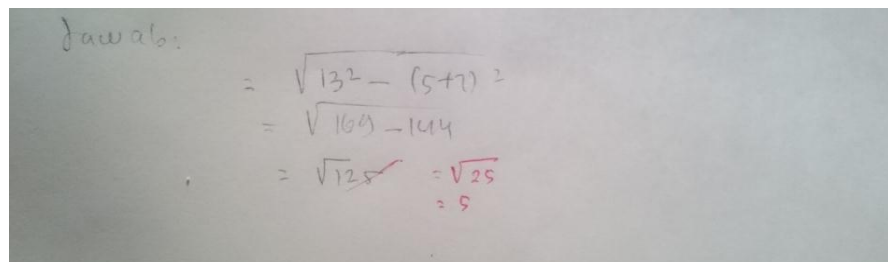 Jawab:
= √13² - (5+7)²
= √169 - 144
= √125 = √25
= 5